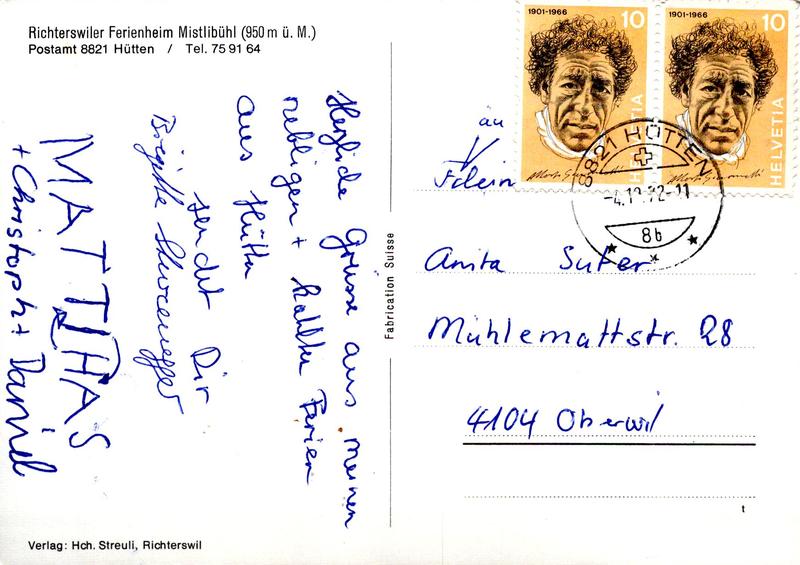 Richterswiler Ferienheim Mistlibühl (950 m ü. M.)
Postamt 8821 Hütten / Tel. 75 91 64
Herzliche Grüsse aus meinen
nebligen + kalten Ferien
aus Hütten
sendet Dir
Brigitte
MATTHIAS
+ Christoph + Daniel
Verlag: Hch. Streuli, Richterswil
Fabrication Suisse
1901-1966 10
HELVETIA
1901-1966 10
HELVETIA
8821 HÜTTEN
-4.10.72-11
8b
an
Frl ein
Anita Suter
Mühlemattstr. 28
4104 Oberwil
t